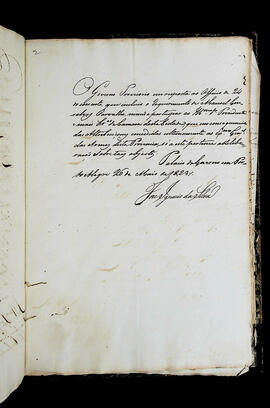 2
O Governo Provisorio em resposta ao Officio de 24
do corrente que incluio o Requerimento de Manoel Gon-
salves Carvalho, manda participar ao Ill.mo Presidente
e mais da Camara desta Cidade que em consequencia
das Attribuiçoens concedidas ultimamente ao
das Armas desta Provincia, só a este pertence a delibe-
ração sobre tais objectos. Palacio do Governo em Por-
to Alegre 26 de Maio de 1823.
José Ignacio da Silva